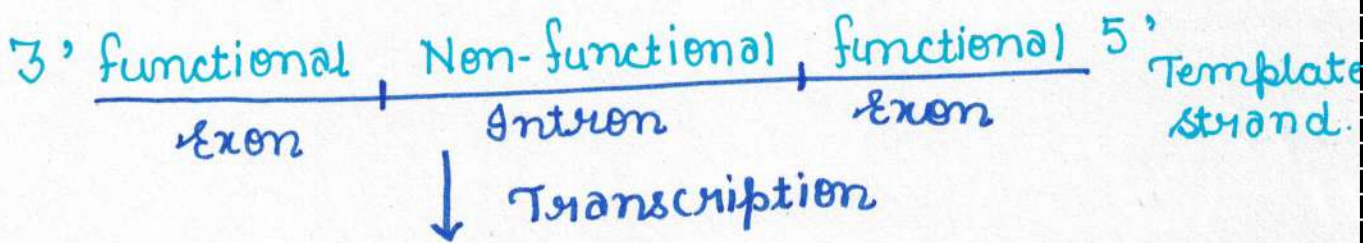 3' functional Non-functional functional 5'
Template
Exon Intron Exon strand.
Transcription